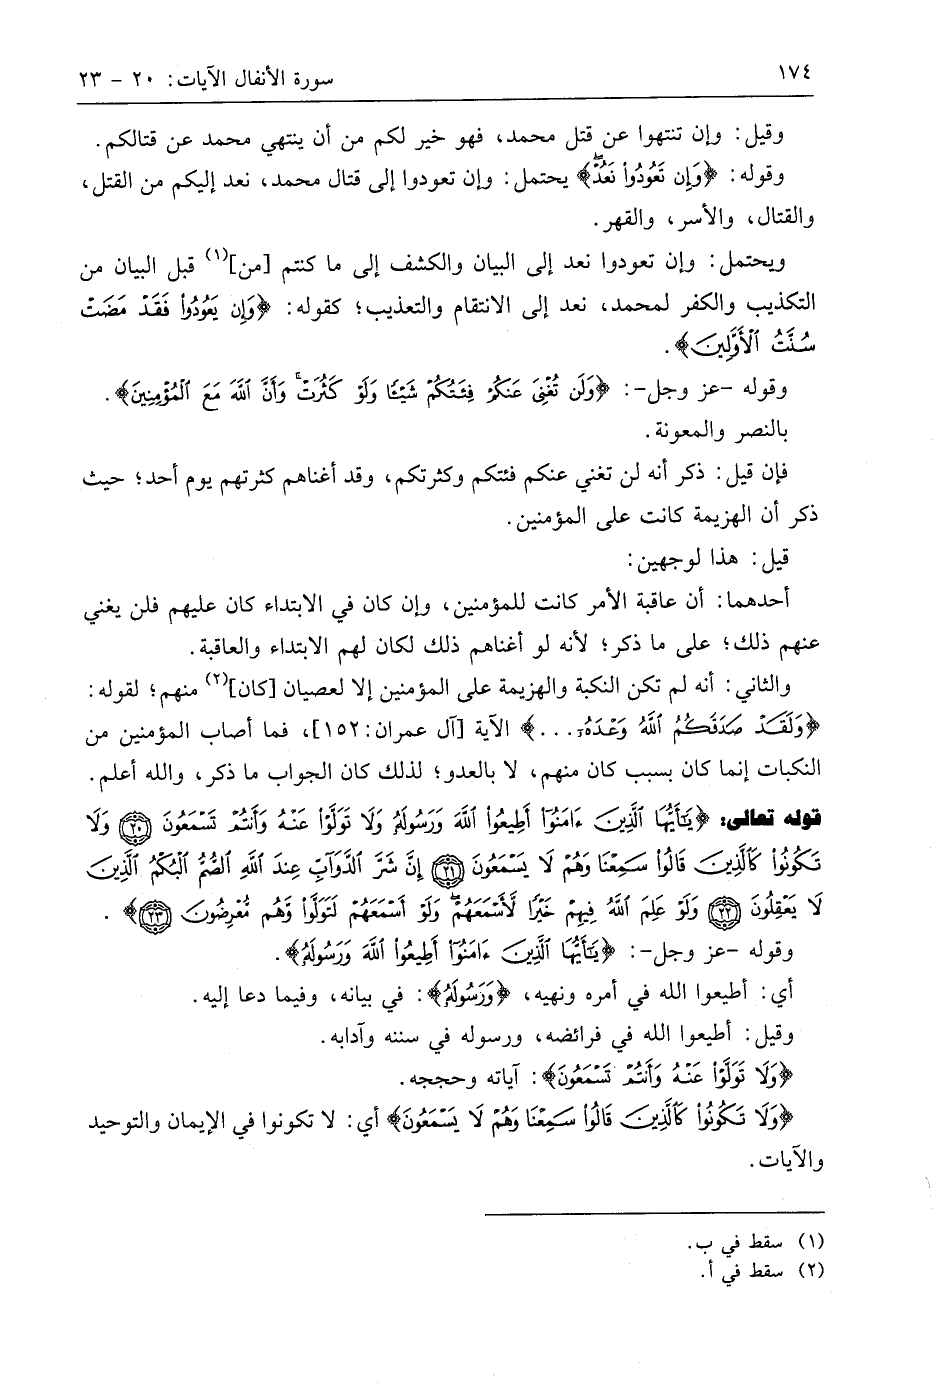 ١٧٤ سورة الأنفال الآيات: ٢٠ - ٢٣
وقيل: وإن تنتهوا عن قتل محمد، فهو خير لكم من أن ينتهي محمد عن قتالكم.
وقوله: ﴿وَإِن تَعُودُواْ نَعُدۡۖ﴾ يحتمل: وإن تعودوا إلى قتال محمد، نعد إليكم من القتل،
والقتال، والأسر، والقهر.
ويحتمل: وإن تعودوا نعد إلى البيان والكشف إلى ما كنتم [من](١) قبل البيان من
التكذيب والكفر لمحمد، نعد إلى الانتقام والتعذيب؛ كقوله: ﴿وَإِن يَعُودُواْ فَقَدۡ مَضَتۡ
سُنَّتُ ٱلۡأَوَّلِينَ﴾.
وقوله -عز وجل-: ﴿وَلَن تُغۡنِيَ عَنكُمۡ فِئَتُكُمۡ شَيۡـٔٗا وَلَوۡ كَثُرَتۡ وَأَنَّ ٱللَّهَ مَعَ ٱلۡمُؤۡمِنِينَ﴾.
بالنصر والمعونة.
فإن قيل: ذكر أنه لن تغني عنكم فئتكم وكثرتكم، وقد أغناهم كثرتهم يوم أحد؛ حيث
ذكر أن الهزيمة كانت على المؤمنين.
قيل: هذا لوجهين:
أحدهما: أن عاقبة الأمر كانت للمؤمنين، وإن كان في الابتداء كان عليهم فلن يغني
عنهم ذلك؛ على ما ذكر؛ لأنه لو أغناهم ذلك لكان لهم الابتداء والعاقبة.
والثاني: أنه لم تكن النكبة والهزيمة على المؤمنين إلا لعصيان [كان](٢) منهم؛ لقوله:
﴿وَلَقَدۡ صَدَقَكُمُ ٱللَّهُ وَعۡدَهُۥٓ...﴾ الآية [آل عمران: ١٥٢]، فما أصاب المؤمنين من
النكبات إنما كان بسبب كان منهم، لا بالعدو؛ لذلك كان الجواب ما ذكر، والله أعلم.
قوله تعالى: ﴿يَٰٓأَيُّهَا ٱلَّذِينَ ءَامَنُوٓاْ أَطِيعُواْ ٱللَّهَ وَرَسُولَهُۥ وَلَا تَوَلَّوۡاْ عَنۡهُ وَأَنتُمۡ تَسۡمَعُونَ ٢٠ وَلَا
تَكُونُواْ كَٱلَّذِينَ قَالُواْ سَمِعۡنَا وَهُمۡ لَا يَسۡمَعُونَ ٢١ إِنَّ شَرَّ ٱلدَّوَآبِّ عِندَ ٱللَّهِ ٱلصُّمُّ ٱلۡبُكۡمُ ٱلَّذِينَ
لَا يَعۡقِلُونَ ٢٢ وَلَوۡ عَلِمَ ٱللَّهُ فِيهِمۡ خَيۡرٗا لَّأَسۡمَعَهُمۡۖ وَلَوۡ أَسۡمَعَهُمۡ لَتَوَلَّواْ وَّهُم مُّعۡرِضُونَ ٢٣﴾.
وقوله -عز وجل-: ﴿يَٰٓأَيُّهَا ٱلَّذِينَ ءَامَنُوٓاْ أَطِيعُواْ ٱللَّهَ وَرَسُولَهُۥ﴾.
أي: أطيعوا الله في أمره ونهيه، ﴿وَرَسُولَهُۥ﴾: في بيانه، وفيما دعا إليه.
وقيل: أطيعوا الله في فرائضه، ورسوله في سننه وآدابه.
﴿وَلَا تَوَلَّوۡاْ عَنۡهُ وَأَنتُمۡ تَسۡمَعُونَ﴾: آياته وحججه.
﴿وَلَا تَكُونُواْ كَٱلَّذِينَ قَالُواْ سَمِعۡنَا وَهُمۡ لَا يَسۡمَعُونَ﴾ أي: لا تكونوا في الإيمان والتوحيد
والآيات.
(١) سقط في ب.
(٢) سقط في أ.